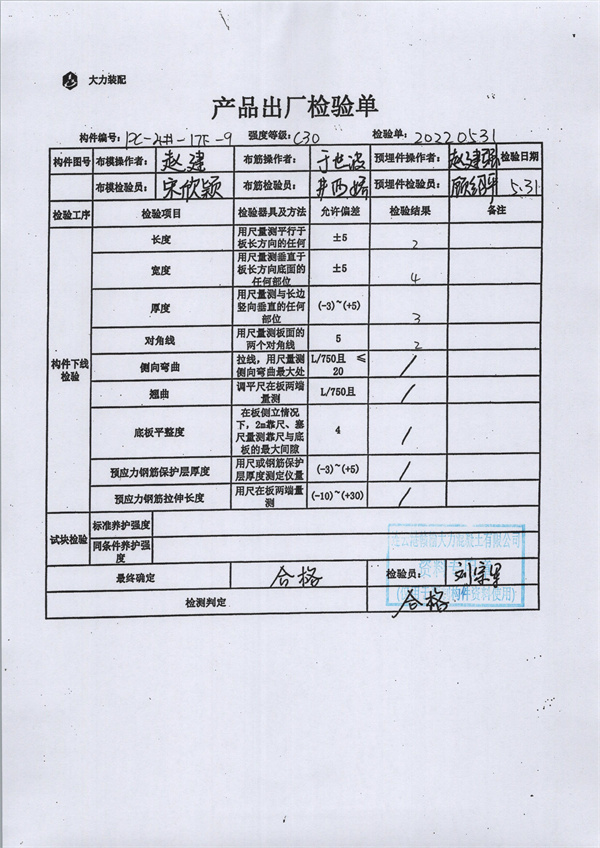 大力装配
产品出厂检验单
构件编号：PC-2#-17F-9 强度等级：C30 检验单：20220531
构件图号 布模操作者：赵建 布筋操作者：于世波 预埋件操作者：赵建强 检验日期
布模检验员：宋欣颖 布筋检验员： 预埋件检验员： 5.31
检验工序 检验项目 检验器具及方法 允许偏差 检验结果 备注
构件下线检验
长度 用尺量测平行于板长方向的任何 ±5 2
宽度 用尺量测垂直于板长方向底面的任何部位 ±5 4
厚度 用尺量测与长边竖向垂直的任何部位 (-3)~(+5) 3
对角线 用尺量测板面的两个对角线 5 2
侧向弯曲 拉线，用尺量测侧向弯曲最大处 L/750且 ≤20 /
翘曲 调平尺在板两端量测 L/750且 /
底板平整度 在板侧立情况下，2m靠尺、塞尺量测靠尺与底板的最大间隙 4 /
预应力钢筋保护层厚度 用尺或钢筋保护层厚度测定仪量 (-3)~(+5) /
预应力钢筋拉伸长度 用尺在板两端量测 (-10)~(+30) /
试块检验 标准养护强度
同条件养护强度
最终确定 合格 检验员：刘宗里
检测判定 合格
大力混凝土有限公司
资料专用
构件资料使用)